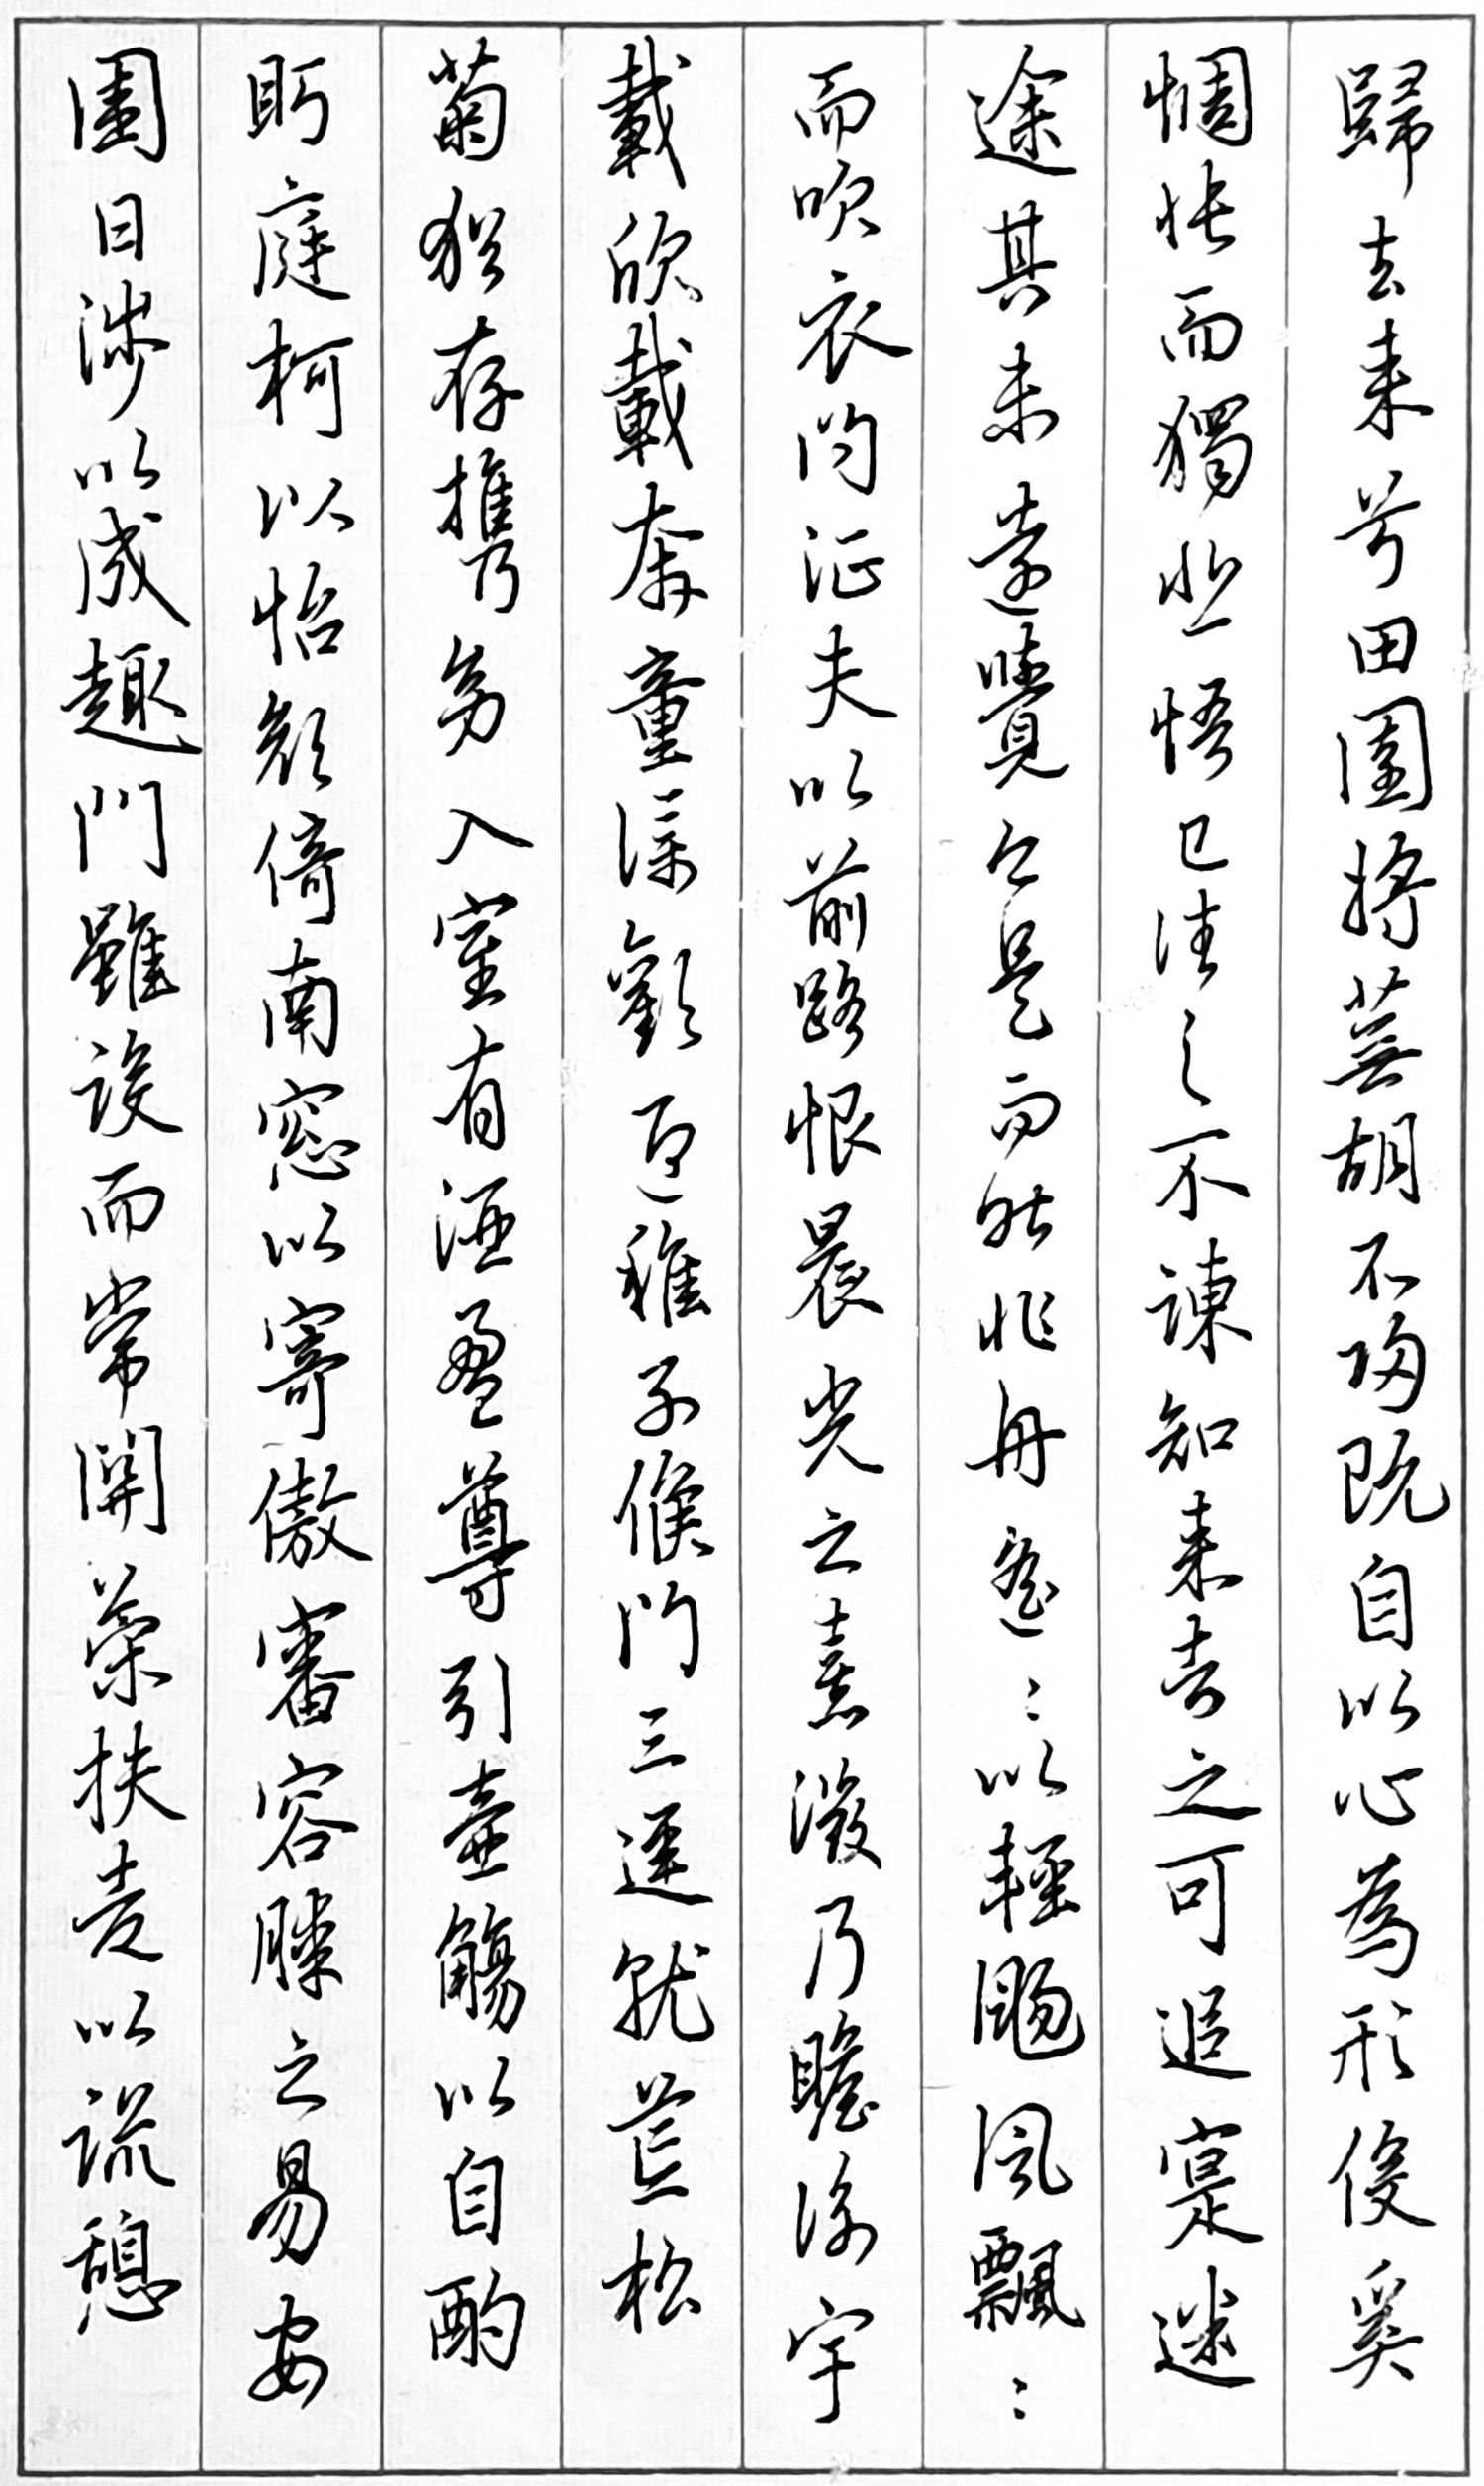 歸去来兮田園將蕪胡不歸既自以心為形役奚
惆悵而獨悲悟已往之不諫知来者之可追寔迷
途其未遠覺今是而昨非舟遥〻以輕颺風飄〻
而吹衣問征夫以前路恨晨光之熹微乃瞻衡宇
載欣載奔童僕歡迎稚子候門三逕就荒松
菊猶存携幼入室有酒盈尊引壺觴以自酌
眄庭柯以怡顏倚南窓以寄傲審容膝之易安
園日涉以成趣門雖設而常開策扶老以流憩